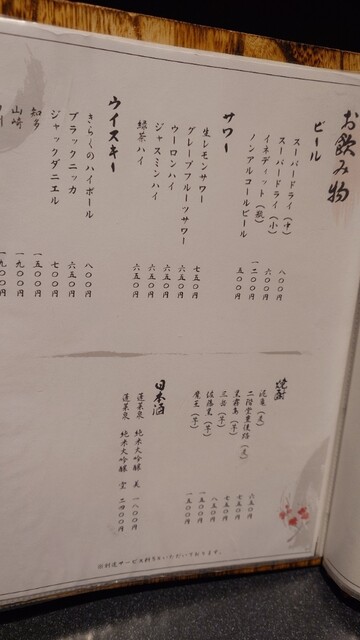 お飲み物
ビール
スーパードライ（中） 八〇〇円
スーパードライ（小） 六〇〇円
イネディット（瓶） 一二〇〇円
ノンアルコールビール 五〇〇円
サワー
生レモンサワー 七五〇円
グレープフルーツサワー 六五〇円
ウーロンハイ 六五〇円
ジャスミンハイ 六五〇円
緑茶ハイ 六五〇円
ウイスキー
きらくのハイボール 八〇〇円
ブラックニッカ 六五〇円
ジャックダニエル 七〇〇円
知多 一五〇〇円
山崎 一九〇〇円
一九〇〇円
焼酎
（麦） 六五〇円
二階堂吉四六（麦） 七五〇円
黒霧島（芋） 七五〇円
三岳（芋） 八五〇円
佐藤黒（芋） 一五〇〇円
魔王（芋） 一五〇〇円
日本酒
蓬莱泉 純米大吟醸 美 一八〇〇円
蓬莱泉 純米大吟醸 空 二四〇〇円
※別途サービス料をいただいております。